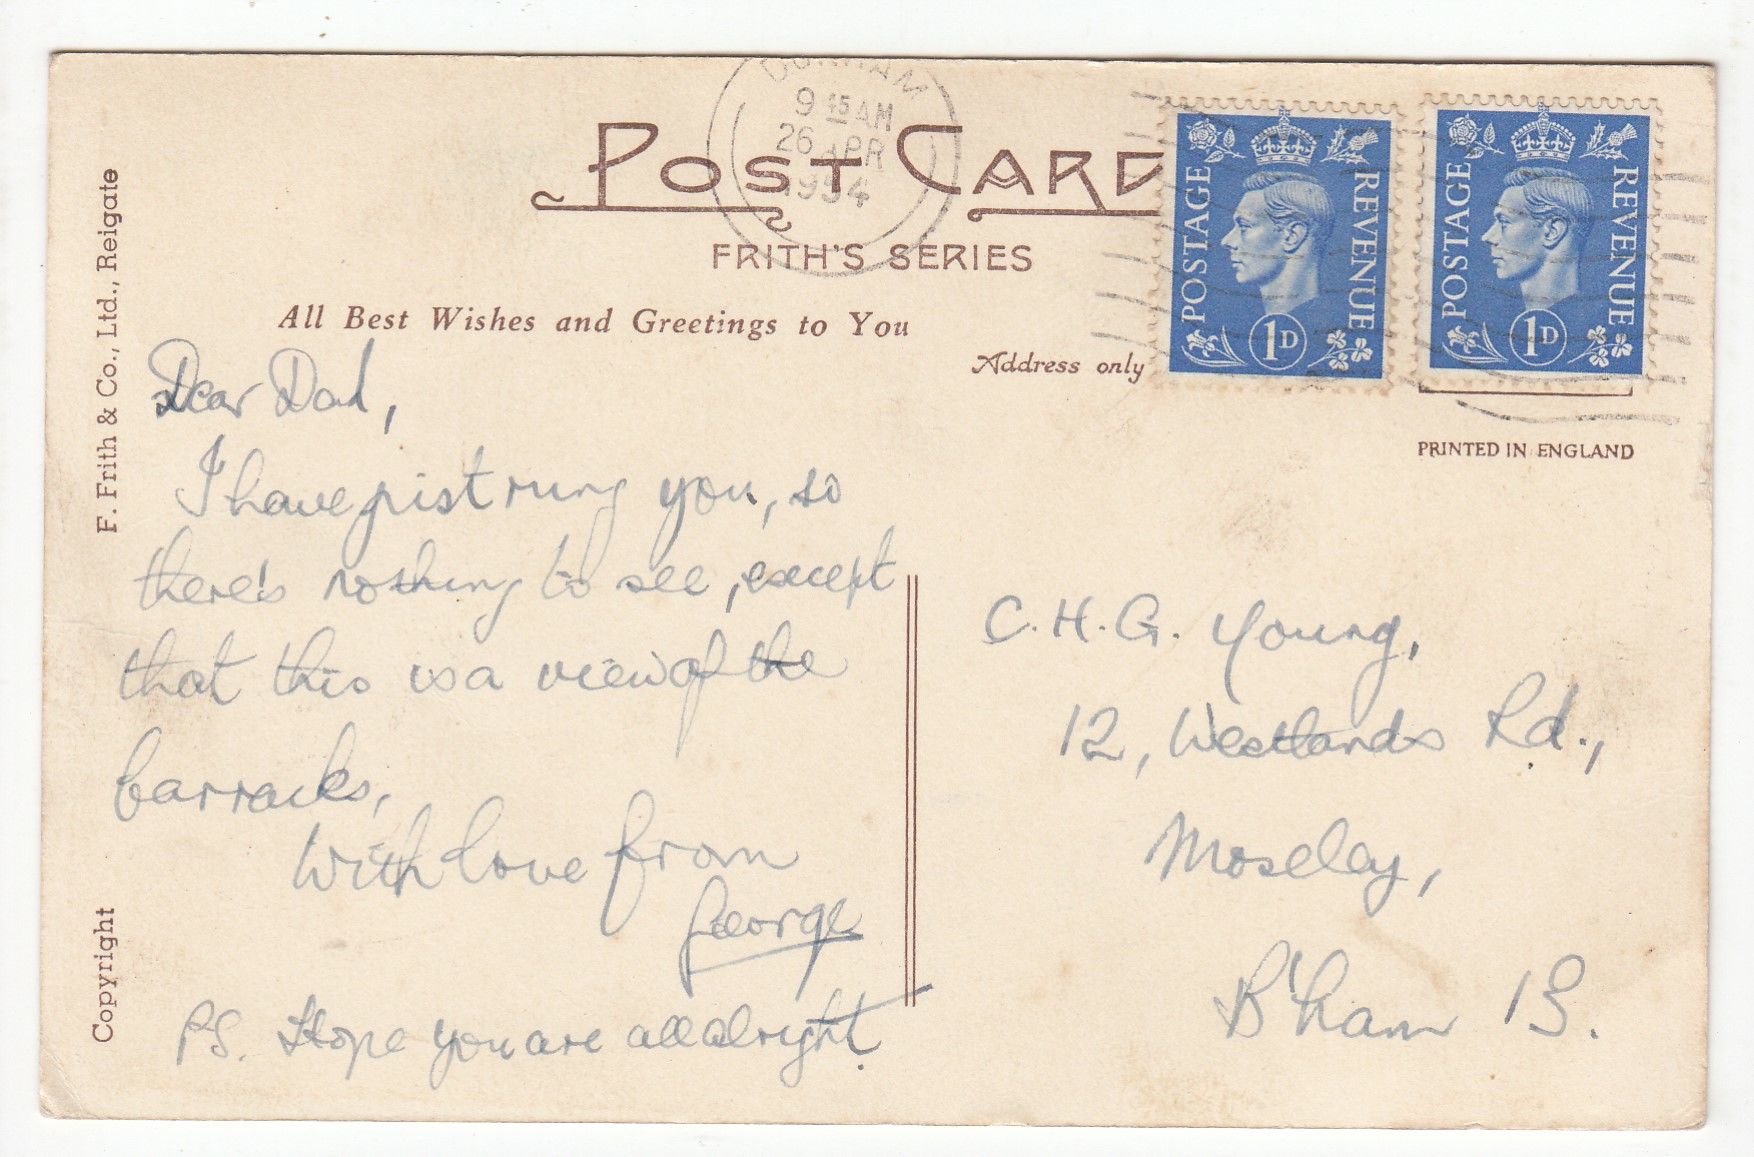 DURHAM
9 15 AM
26 APR
1954
POST CARD
FRITH'S SERIES
All Best Wishes and Greetings to You
Address only
POSTAGE REVENUE
1D
POSTAGE REVENUE
1D
PRINTED IN ENGLAND
F. Frith & Co., Ltd., Reigate
Copyright
Dear Dad,
I have just rung you, so
there's nothing to see, except
that this is a view of the
barracks,
With love from
George
PS. Hope you are all alright.
C.H.G. Young,
12, Westlands Rd.,
Moseley,
B'ham 13.